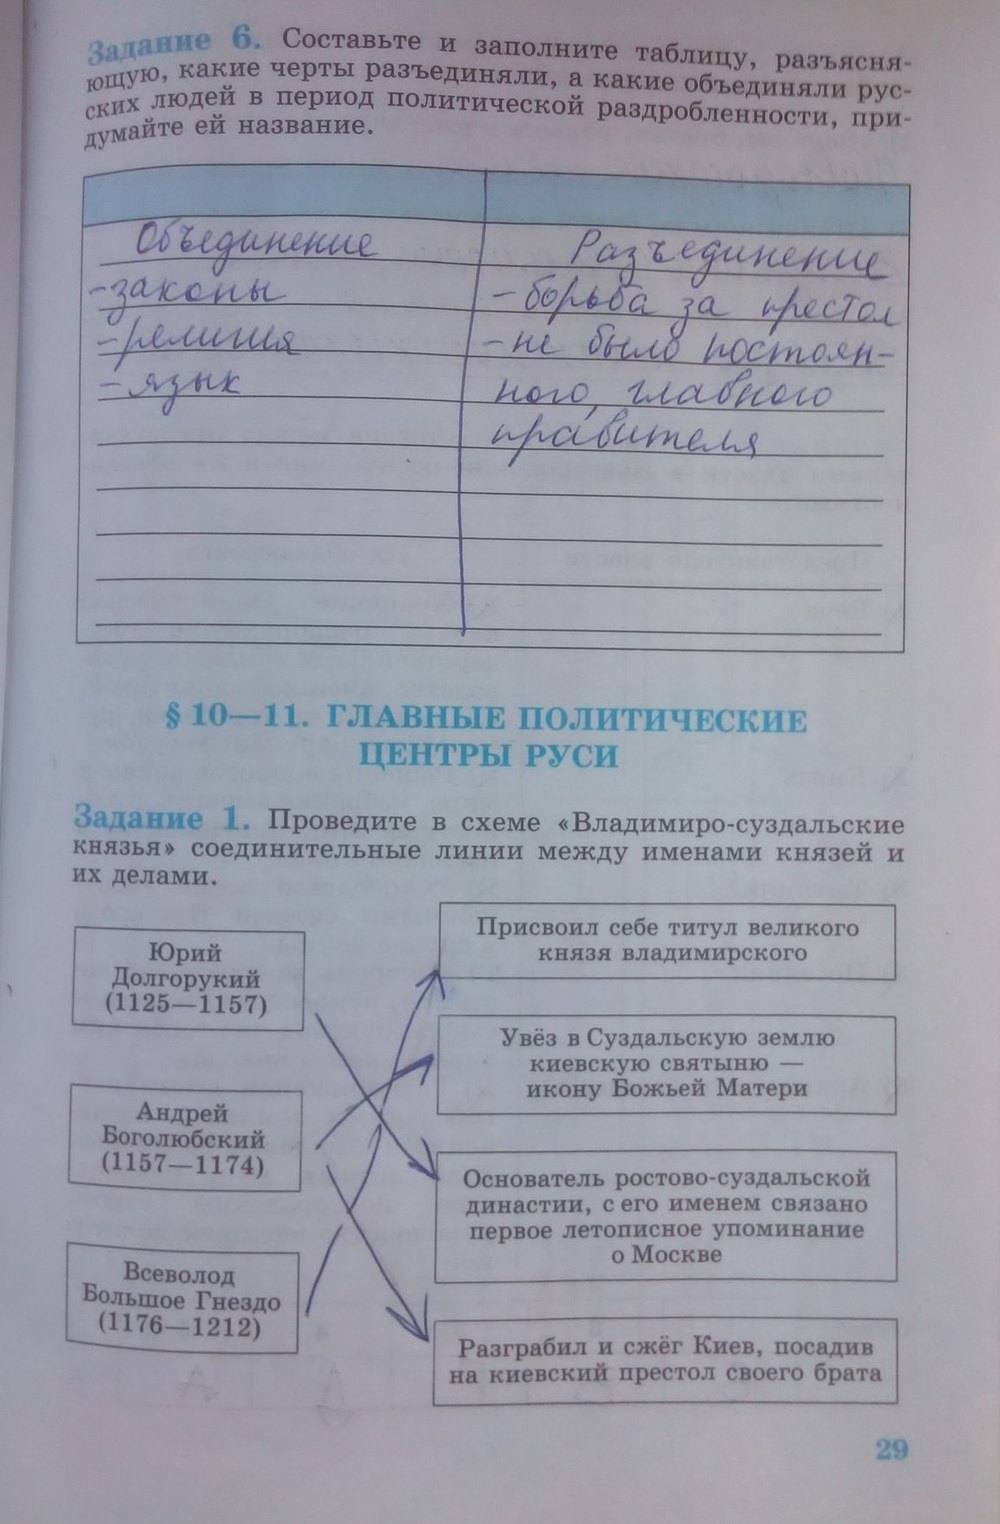 Задание 6. Составьте и заполните таблицу, разъясня-
ющую, какие черты разъединяли, а какие объединяли рус-
ских людей в период политической раздробленности, при-
думайте ей название.
Объединение
- законы
- религия
- язык
Разъединение
- борьба за престол
- не было постоян-
ного, главного
правителя
§ 10—11. ГЛАВНЫЕ ПОЛИТИЧЕСКИЕ
ЦЕНТРЫ РУСИ
Задание 1. Проведите в схеме «Владимиро-суздальские
князья» соединительные линии между именами князей и
их делами.
Юрий
Долгорукий
(1125—1157)
Андрей
Боголюбский
(1157—1174)
Всеволод
Большое Гнездо
(1176—1212)
Присвоил себе титул великого
князя владимирского
Увёз в Суздальскую землю
киевскую святыню —
икону Божьей Матери
Основатель ростово-суздальской
династии, с его именем связано
первое летописное упоминание
о Москве
Разграбил и сжёг Киев, посадив
на киевский престол своего брата
29